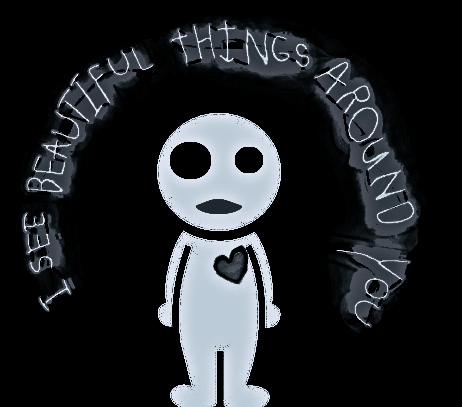 I SEE BEAUTIFUL THINGS AROUND YOU